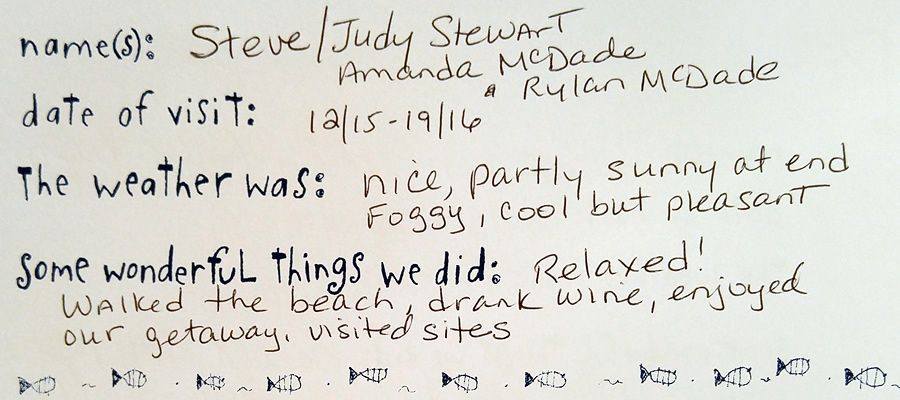 name(s): Steve/Judy Stewart
Amanda McDade
& Rylan McDade
date of visit: 12/15-19/16
The weather was: nice, partly sunny at end
Foggy, cool but pleasant
Some wonderful things we did: Relaxed!
Walked the beach, drank wine, enjoyed
our getaway. visited sites